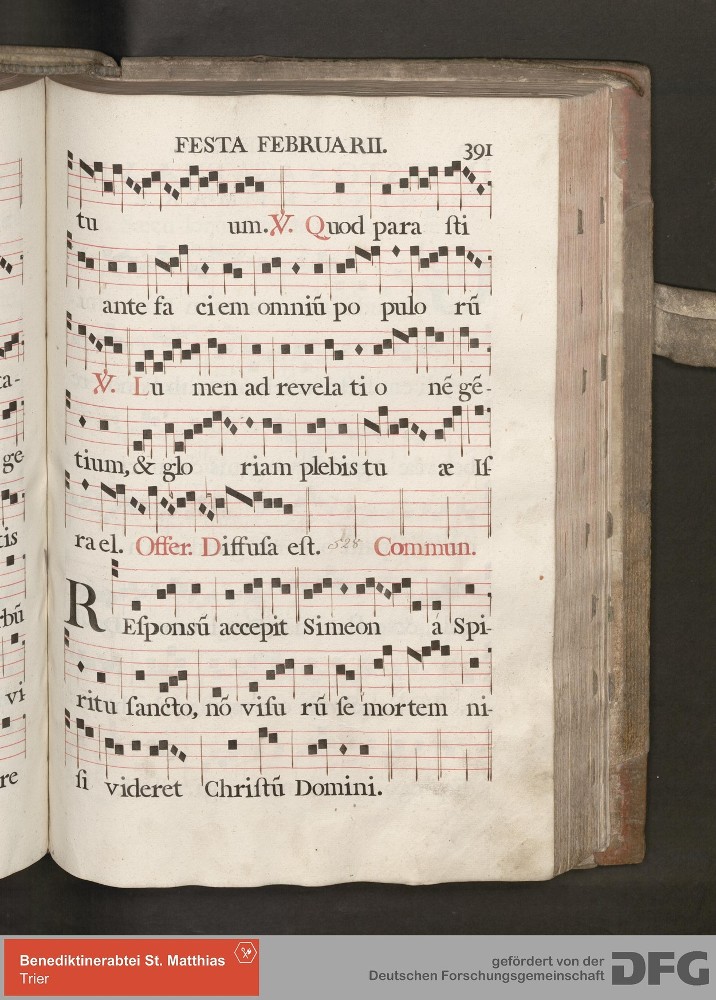 FESTA FEBRUARII. 391
tu um. ℣. Quod para ſti
ante fa ci em omniũ po pulo rũ
℣. Lu men ad revela ti o nẽ gẽ-
tium, & glo riam plebis tu æ Iſ
ra el. Offer. Diffuſa eſt. 528 Commun.
REſponsũ accepit Simeon a Spi-
ritu ſancto, nõ viſu rũ ſe mortem ni-
ſi videret Chriſtũ Domini.
ta-
ge
tis
rbũ
vi
re
Benediktinerabtei St. Matthias
Trier
gefördert von der
Deutschen Forschungsgemeinschaft DFG